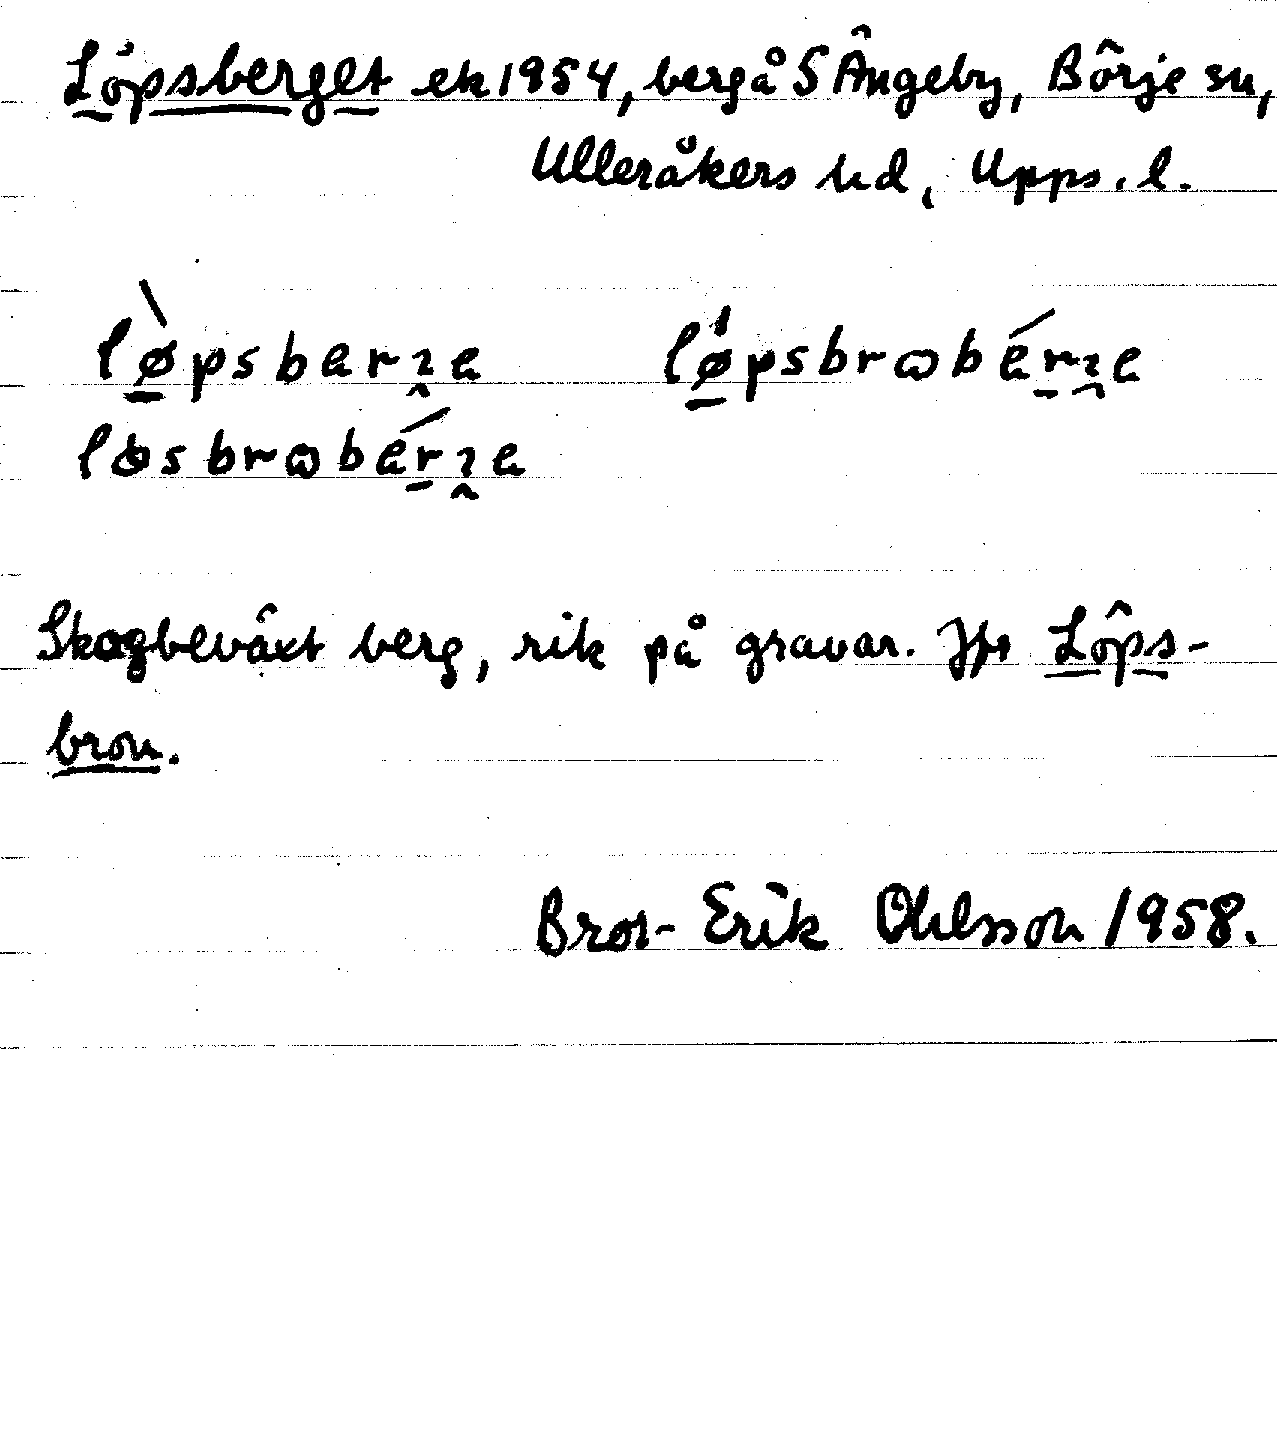 Löpsberget ek 1954, berg å S Ängeby, Börje sn,
Ulleråkers hd, Upps. l.
lø̀psbarʒe lǿpsbrɷbérʒe
løsbrɷbérʒe
Skogbeväxt berg, rik på gravar. Jfr Löps-
bron.
Bror-Erik Ohlsson 1958.